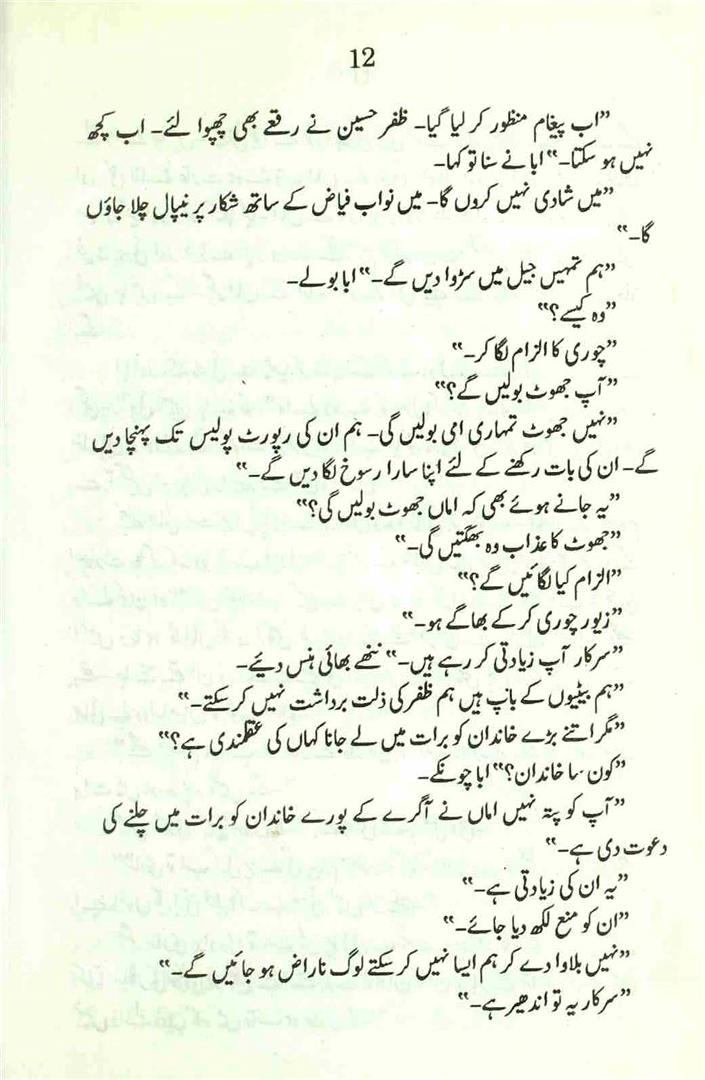 12
”اب پیغام منظور کر لیا گیا۔ ظفر حسین نے رقعے بھی چھپوا لئے۔ اب کچھ
نہیں ہو سکتا۔“ ابا نے سنا تو کہا۔
”میں شادی نہیں کروں گا۔ میں نواب فیاض کے ساتھ شکار پر نیپال چلا جاؤں
گا۔“
”ہم تمہیں جیل میں سڑوا دیں گے۔“ ابا بولے۔
”وہ کیسے؟“
”چوری کا الزام لگا کر۔“
”آپ جھوٹ بولیں گے؟“
”نہیں جھوٹ تمہاری امی بولیں گی۔ ہم ان کی رپورٹ پولیس تک پہنچا دیں
گے۔ ان کی بات رکھنے کے لئے اپنا سارا رسوخ لگا دیں گے۔“
”یہ جانے ہوئے بھی کہ اماں جھوٹ بولیں گی؟“
”جھوٹ کا عذاب وہ بھگتیں گی۔“
”الزام کیا لگائیں گے؟“
”زیور چوری کر کے بھاگے ہو۔“
”سرکار آپ زیادتی کر رہے ہیں۔“ ننھے بھائی ہنس دیئے۔
”ہم بیٹیوں کے باپ ہیں ہم ظفر کی ذلت برداشت نہیں کر سکتے۔“
”مگر اتنے بڑے خاندان کو برات میں لے جانا کہاں کی عقلمندی ہے؟“
”کون سا خاندان؟“ ابا چونکے۔
”آپ کو پتہ نہیں اماں نے آگرے کے پورے خاندان کو برات میں چلنے کی
دعوت دی ہے۔“
”یہ ان کی زیادتی ہے۔“
”ان کو منع لکھ دیا جائے۔“
”نہیں بلاوا دے کر ہم ایسا نہیں کر سکتے لوگ ناراض ہو جائیں گے۔“
”سرکار یہ تو اندھیر ہے۔“